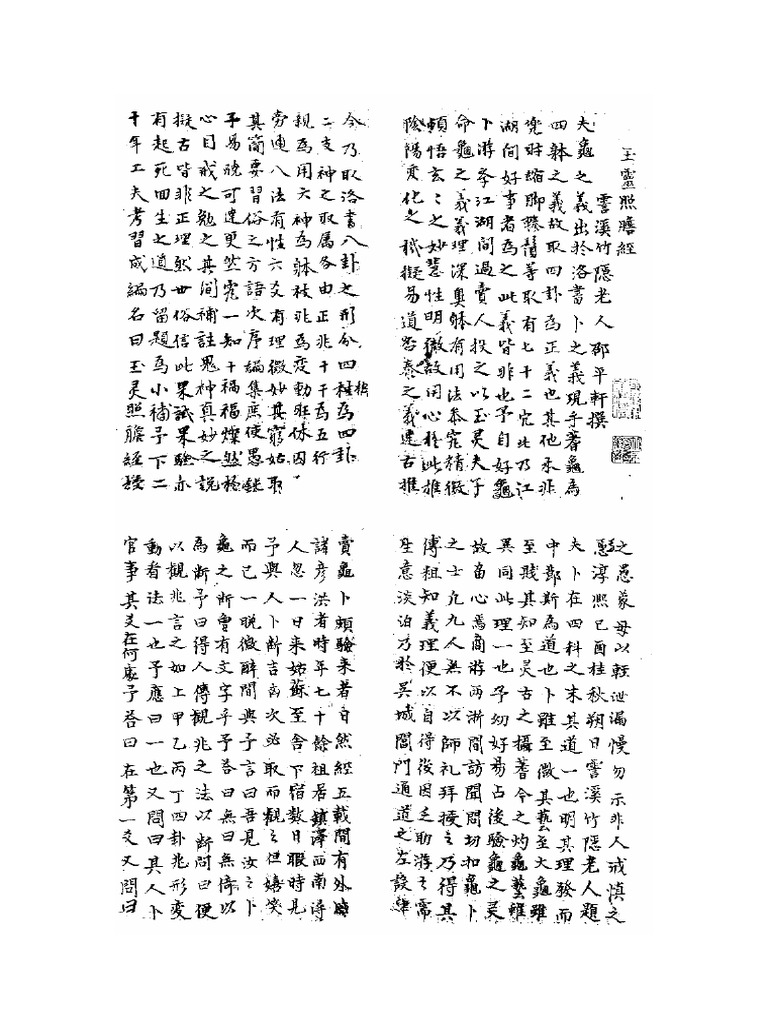 玉靈照膽經
雲溪竹隱老人邵平軒撰
夫龜之義出於洛書卜之義現乎蓍龜為
四躰之義故取四卦為正義也其他承非
兜財縮脚等取有七十二穴此乃江
湖間好事者為之此義皆非也予自好龜
卜游孝江湖間過賣人授之以玉灵夫子
命龜之義義理深奥躰有用法叅究精微
頓悟玄玄之妙慧性明微故用心於此推
陰陽变化之秘擬易道否泰之義達古推
今乃取洛書八卦之形分四柱為四卦
二支神之取属各由正兆十干為五行
親為用六神為躰被兆為变動旺休囚
旁通八法有性六爻有理微妙其窮姑取
其簡要習俗之方語次序編集庶使愚鈍
予易䚷可達更然究一知十禍福燦然於
心目戒之勉之其間補註鬼神真妙之說
擬古皆非正理然世俗信此果誠果驗亦
有起死回生之道乃留題為小補予下二
十年工夫考習成編名曰玉灵照膽經授
之愚蒙毋以輕泄漏慢勿示非人戒慎之
淳熙己酉桂秋朔日雲溪竹隱老人題
夫卜在四科之末其道一也明其理發而
中鄙斯為道也卜雖至微其藝至大龜雖
至賤其知至灵古之揲蓍今之灼龜藝雖
異同此理一也予幼好易占後驗龜之灵
故留心焉商游两浙間訪聞問切扣龜卜
之士凢九人無不以師礼拜授之乃得其
傳粗知義理便以自得後因乏助游之需
生意淡泊乃於吳城閶門通道之左設肆
賣龜卜頗驗来者日然經五載間有外時
諸彦洪者時年七十餘祖居鎮澤西南潯
人忽一日来姑蘇至舍下宿数日暇時見
予與人卜斷吉凶次必取而觀之但嬉笑
而已一晚微醉間與予言曰吾見汝之卜
龜之断曾有文字乎予荅曰無曰無俦以
為断予曰得人傳觀兆之法以断問曰便
以觀兆言之如上甲乙丙丁四卦兆形変
動者法一也予應曰一也又問曰其人卜
官事其爻在何處予荅曰在第一爻又問曰